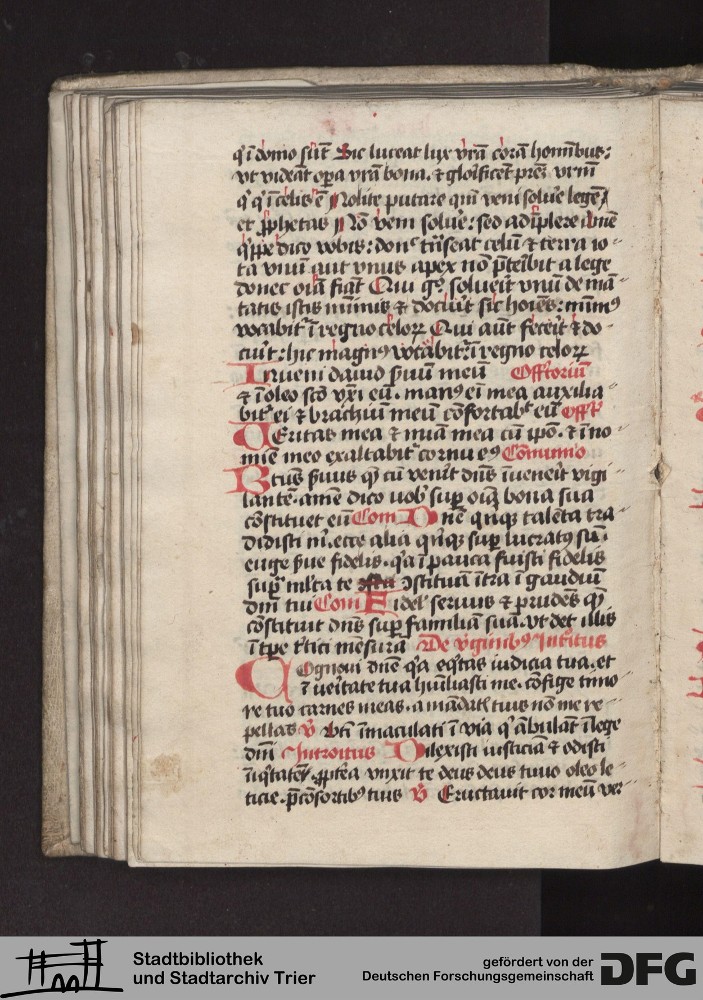 q̇ ī domo sūt Sic luceat lux vrā̄ corā̄ homī̄bus:
vt videāt oꝑa vrā̄ bona. ⁊ gloīficēt prēs vrm̄
q̇ q̇ ī celis ē Nolite putare qm̄ veni solūe legē
et ꝓphetas Nō veni solūe: sed adīplere Amē
q̇ppe dico vobis: donᶜ trāseat celū ⁊ terra io
ta vnū aut vnus apex nō p̄teībit a lege
donec oīa fiāt Qui gͦ soluerit vnū de mā
datis istis mīmis ⁊ docuīt sic hoīes: mīmꝰ
vocabitᷣ ī regno celoꝝ Qui aūt fecīt ⁊ do
cuīt: hic magnꝰ vocabitᷣ ī regno celoꝝ
Inueni dauid ẜuū meū Offtoriū
⁊ ī oleo scō vxi eū. manꝰ eī mea auxilia
bitᷣ ei ⁊ brachiū meū cōfortabᵗ eū offᵗ
Veritas mea ⁊ mīa mea cū ipō. ⁊ ī no
mīe meo exaltabitᷣ cornu eꝰ Cōmunio
Btūs ẜuus q̄ cū venīt dn̄s īuenerit vigi
lantē. amē dico uob̄ suꝑ oīa bona sua
cōstituet eū Com Dn̄e q̄nqꝫ talēta tra
didisti m̄. ecce alia q̄nqꝫ suꝑ lucratꝰ sū
euge ẜue fidelis. q̇a ī pauca fuisti fidelis
suꝑ mlta te ↄstituā ītra ī gaudiū
dnī tui Com Fidelᷤ seruus ⁊ prudēs q̄
cōstituit dn̄s suꝑ familiā suā. vt det illis
ī tꝑe t̓tici mēsurā De v̓ginibꝰ Introitus
Cognoui dn̄e q̇a eq̇tas iudicia tua. et
ī ueītate tua hūiliasti me. cōfige timo
re tuo carnes meas. a mādatᷤ tuis nō me re
pellas V̓ Bti īmaculati ī via q̇ ābulāt ī lege
dnī Introitus Dilexisti iusticiā ⁊ odisti
īiq̇tatē. ꝓptēa vnxit te deus deus tuus oleo le
ticie. p̄ cōsortibꝰ tuis V̓ Eructauit cor meū ver
Stadtbibliothek
und Stadtarchiv Trier
gefördert von der
Deutschen Forschungsgemeinschaft
DFG